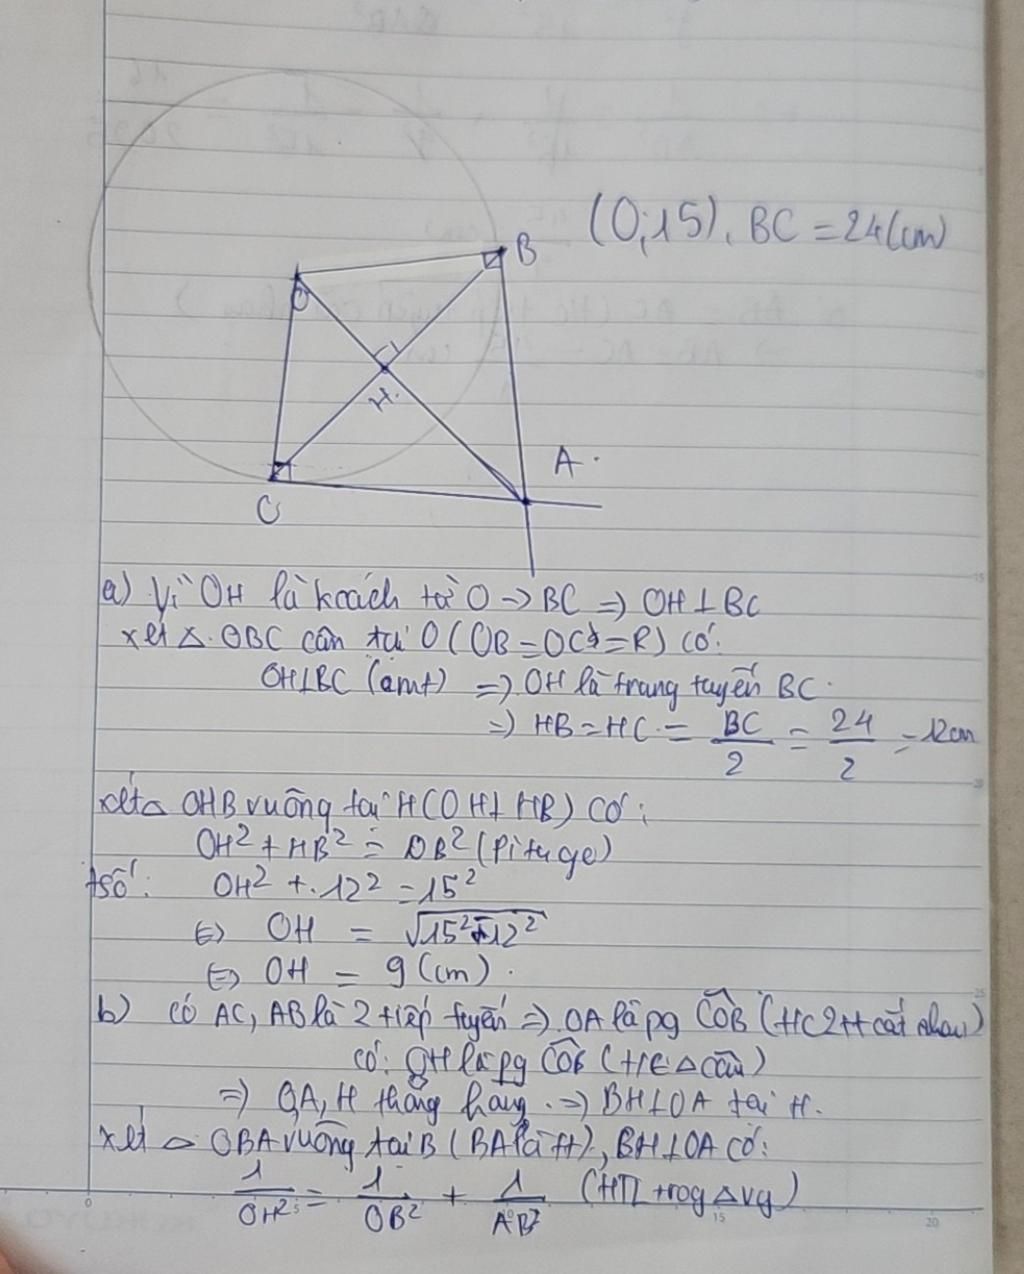 (O;15), BC = 24(cm)
B
O
H
A
C
a) Vì OH là kcách từ O → BC ⇒ OH ⊥ BC
xét △ OBC cân tại O (OB = OC = R) có:
OH ⊥ BC (cmt) ⇒ OH là trung tuyến BC
⇒ HB = HC = BC/2 = 24/2 = 12cm
xét △ OHB vuông tại H (OH ⊥ HB) có:
OH² + HB² = OB² (Pitago)
tsố: OH² + 12² = 15²
⇔ OH = √15² - 12²
⇔ OH = 9 (cm).
b) có AC, AB là 2 tiếp tuyến ⇒ OA là pg COB (t/c 2tt cắt nhau)
có: OH là pg COB (t/c △ cân)
⇒ O, A, H thẳng hàng ⇒ BH ⊥ OA tại H.
xét △ OBA vuông tại B (BA là tt), BH ⊥ OA có:
1/OH² = 1/OB² + 1/AB² (HTL trog △ vg)